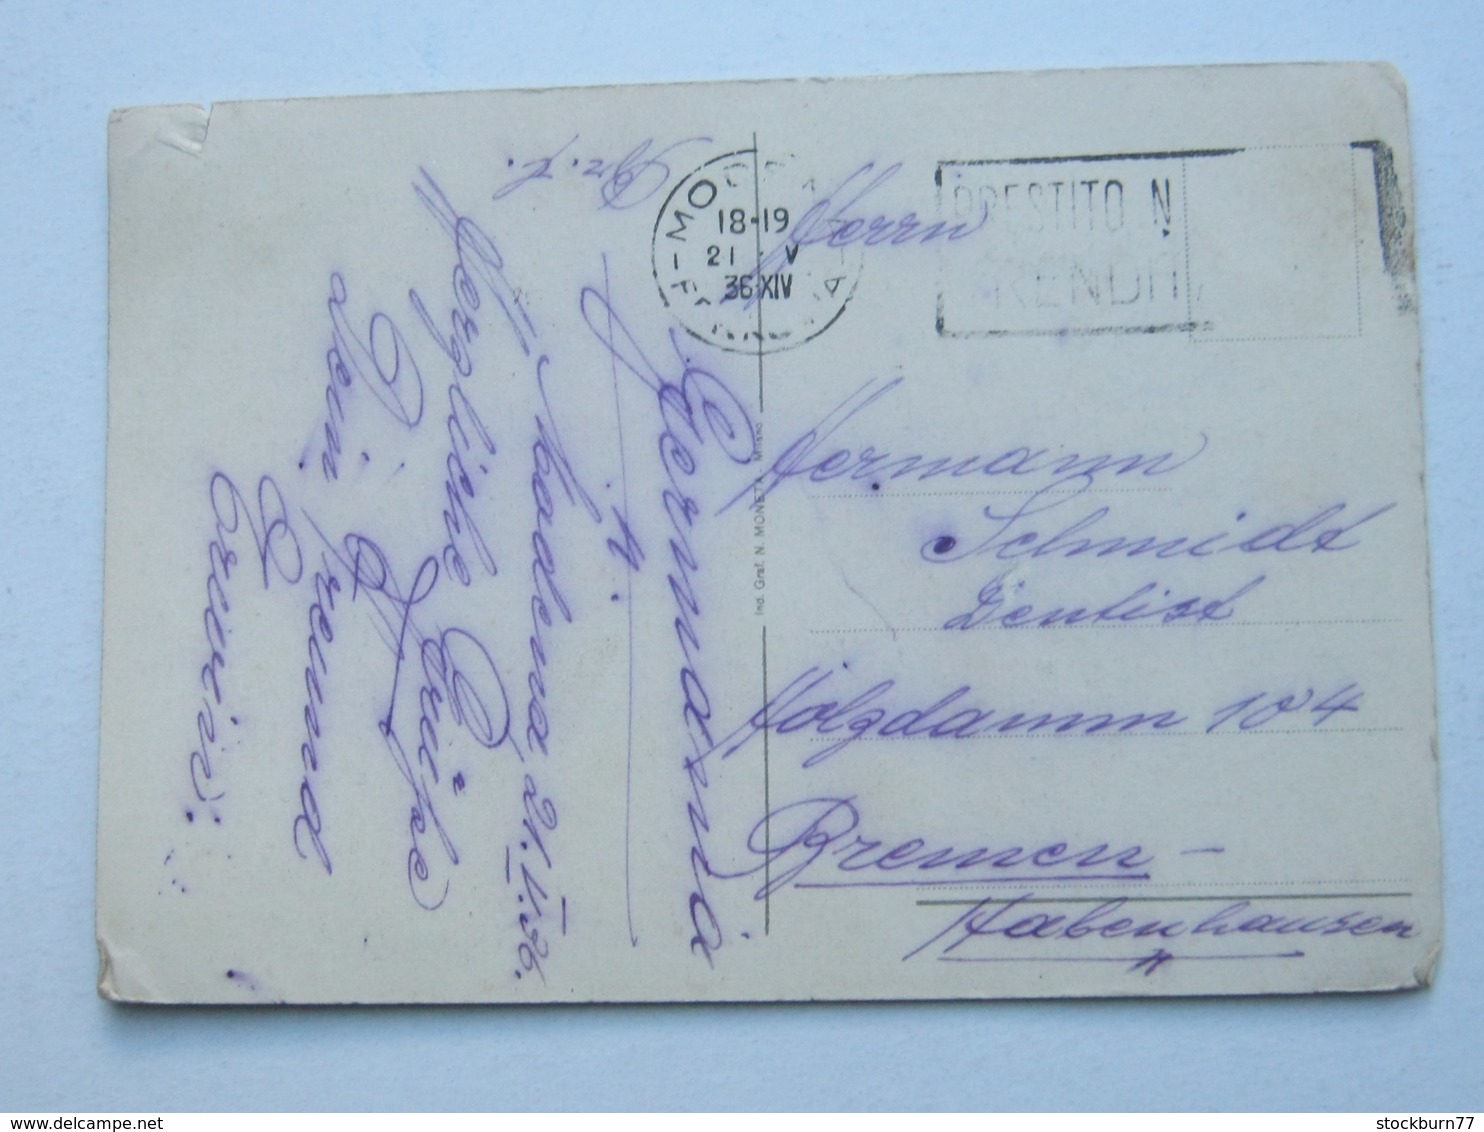 MODENA
18-19
21 · V
36 XIV
PRESTITO N
RENDIT
Herrn
Hermann
Schmidt
Dentist
Holzdamm 104
Bremen -
Habenhausen
Germania
Modena, 21. V. 36.
Herzliche Grüße
Dein Freund
Ind. Graf. N. MONETA - Milano
stockburn77